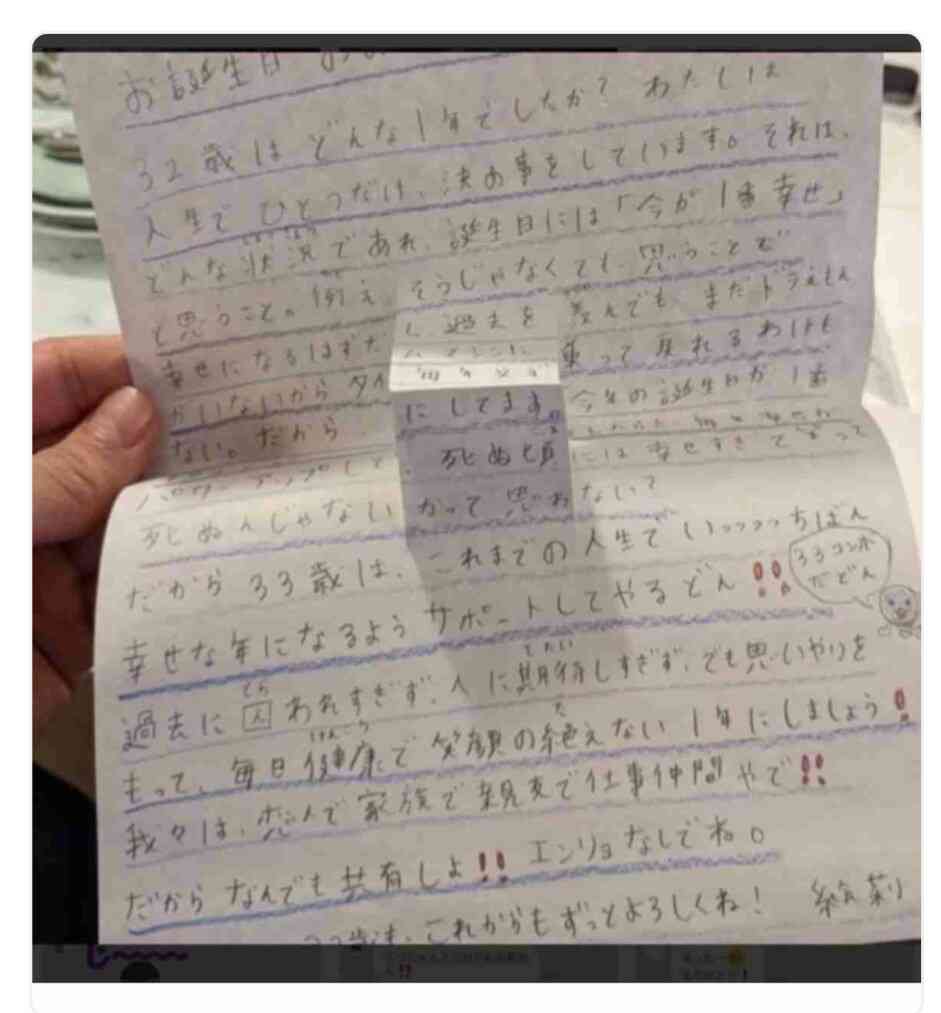 お誕生日
32歳はどんな1年でしたか? わたしは
人生でひとつだけ、決め事をしています。それは、
どんな状況であれ、誕生日には「今が1番幸せ」
じょうきょう
と思うこと。例え、そうじゃなくても、思うことで
幸せになるはずだ 過去を 羨んでも、まだドラえもん
がいないからタイ 乗って戻れるわけも
ない。だから 毎年 にしてます。今年の誕生日が1番
パワーアップして 死ぬ頃には幸せすぎて
死ぬんじゃないかって思わない?
だから33歳は、これまでの人生でいっっっっちばん
幸せな年になるようサポートしてやるどん!!
33コンボ
だどん
過去に囚われすぎず、人に期待しすぎず、でも思いやりを
とら
きたい
もって、毎日健康で笑顔の絶えない1年にしましょう!
けんこう
た
我々は、恋人で家族で親友で仕事仲間やで!!
だからなんでも共有しよ!! エンリョなしでね。
これからもずっとよろしくね! 絵莉